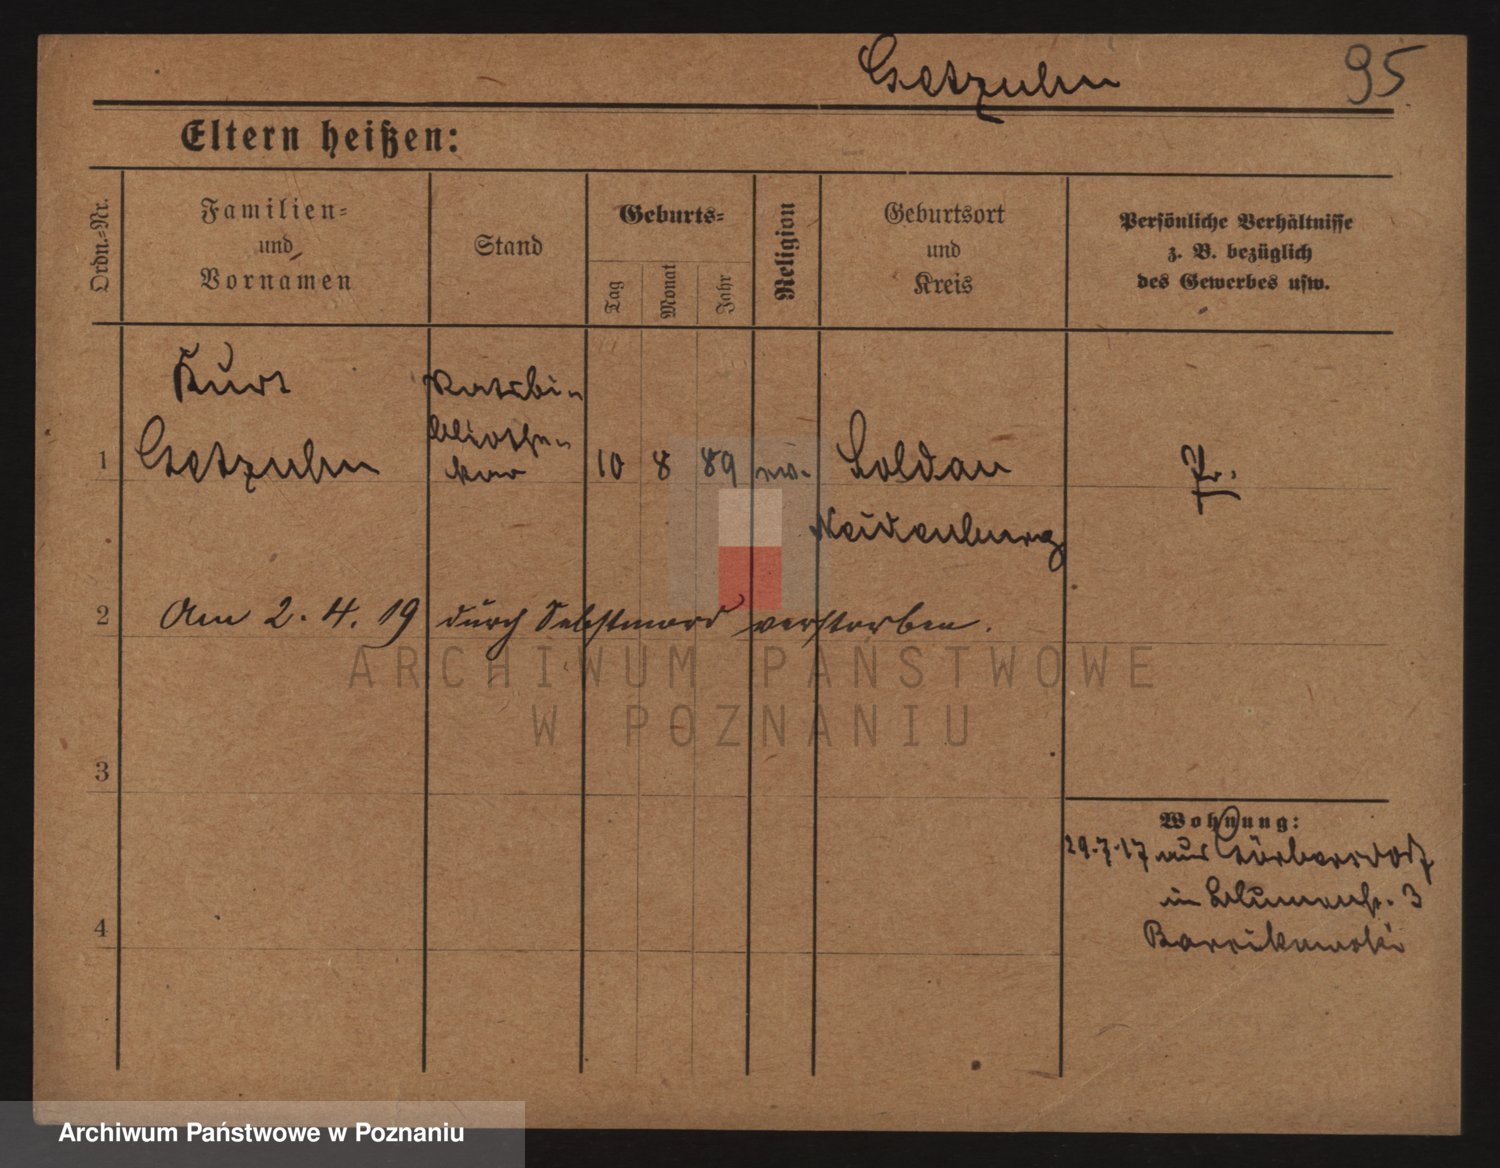 Getzuhn 95
Eltern heißen:
Ordn.-Nr.
Familien-
und
Vornamen
Stand
Geburts-
Tag
Monat
Jahr
Religion
Geburtsort
und
Kreis
Persönliche Verhältnisse
z. B. bezüglich
des Gewerbes usw.
Kurt
Getzuhn
Ratsbi-
bliothe-
kar
1 10 8 89 ev. Soldau Pr.
Neidenburg
2 Am 2. 4. 19 durch Selbstmord verstorben.
ARCHIWUM PAŃSTWOWE
W POZNANIU
3
Wohnung:
29.7.17 aus Görbersdorf
in Blumenstr. 3
4
Archiwum Państwowe w Poznaniu